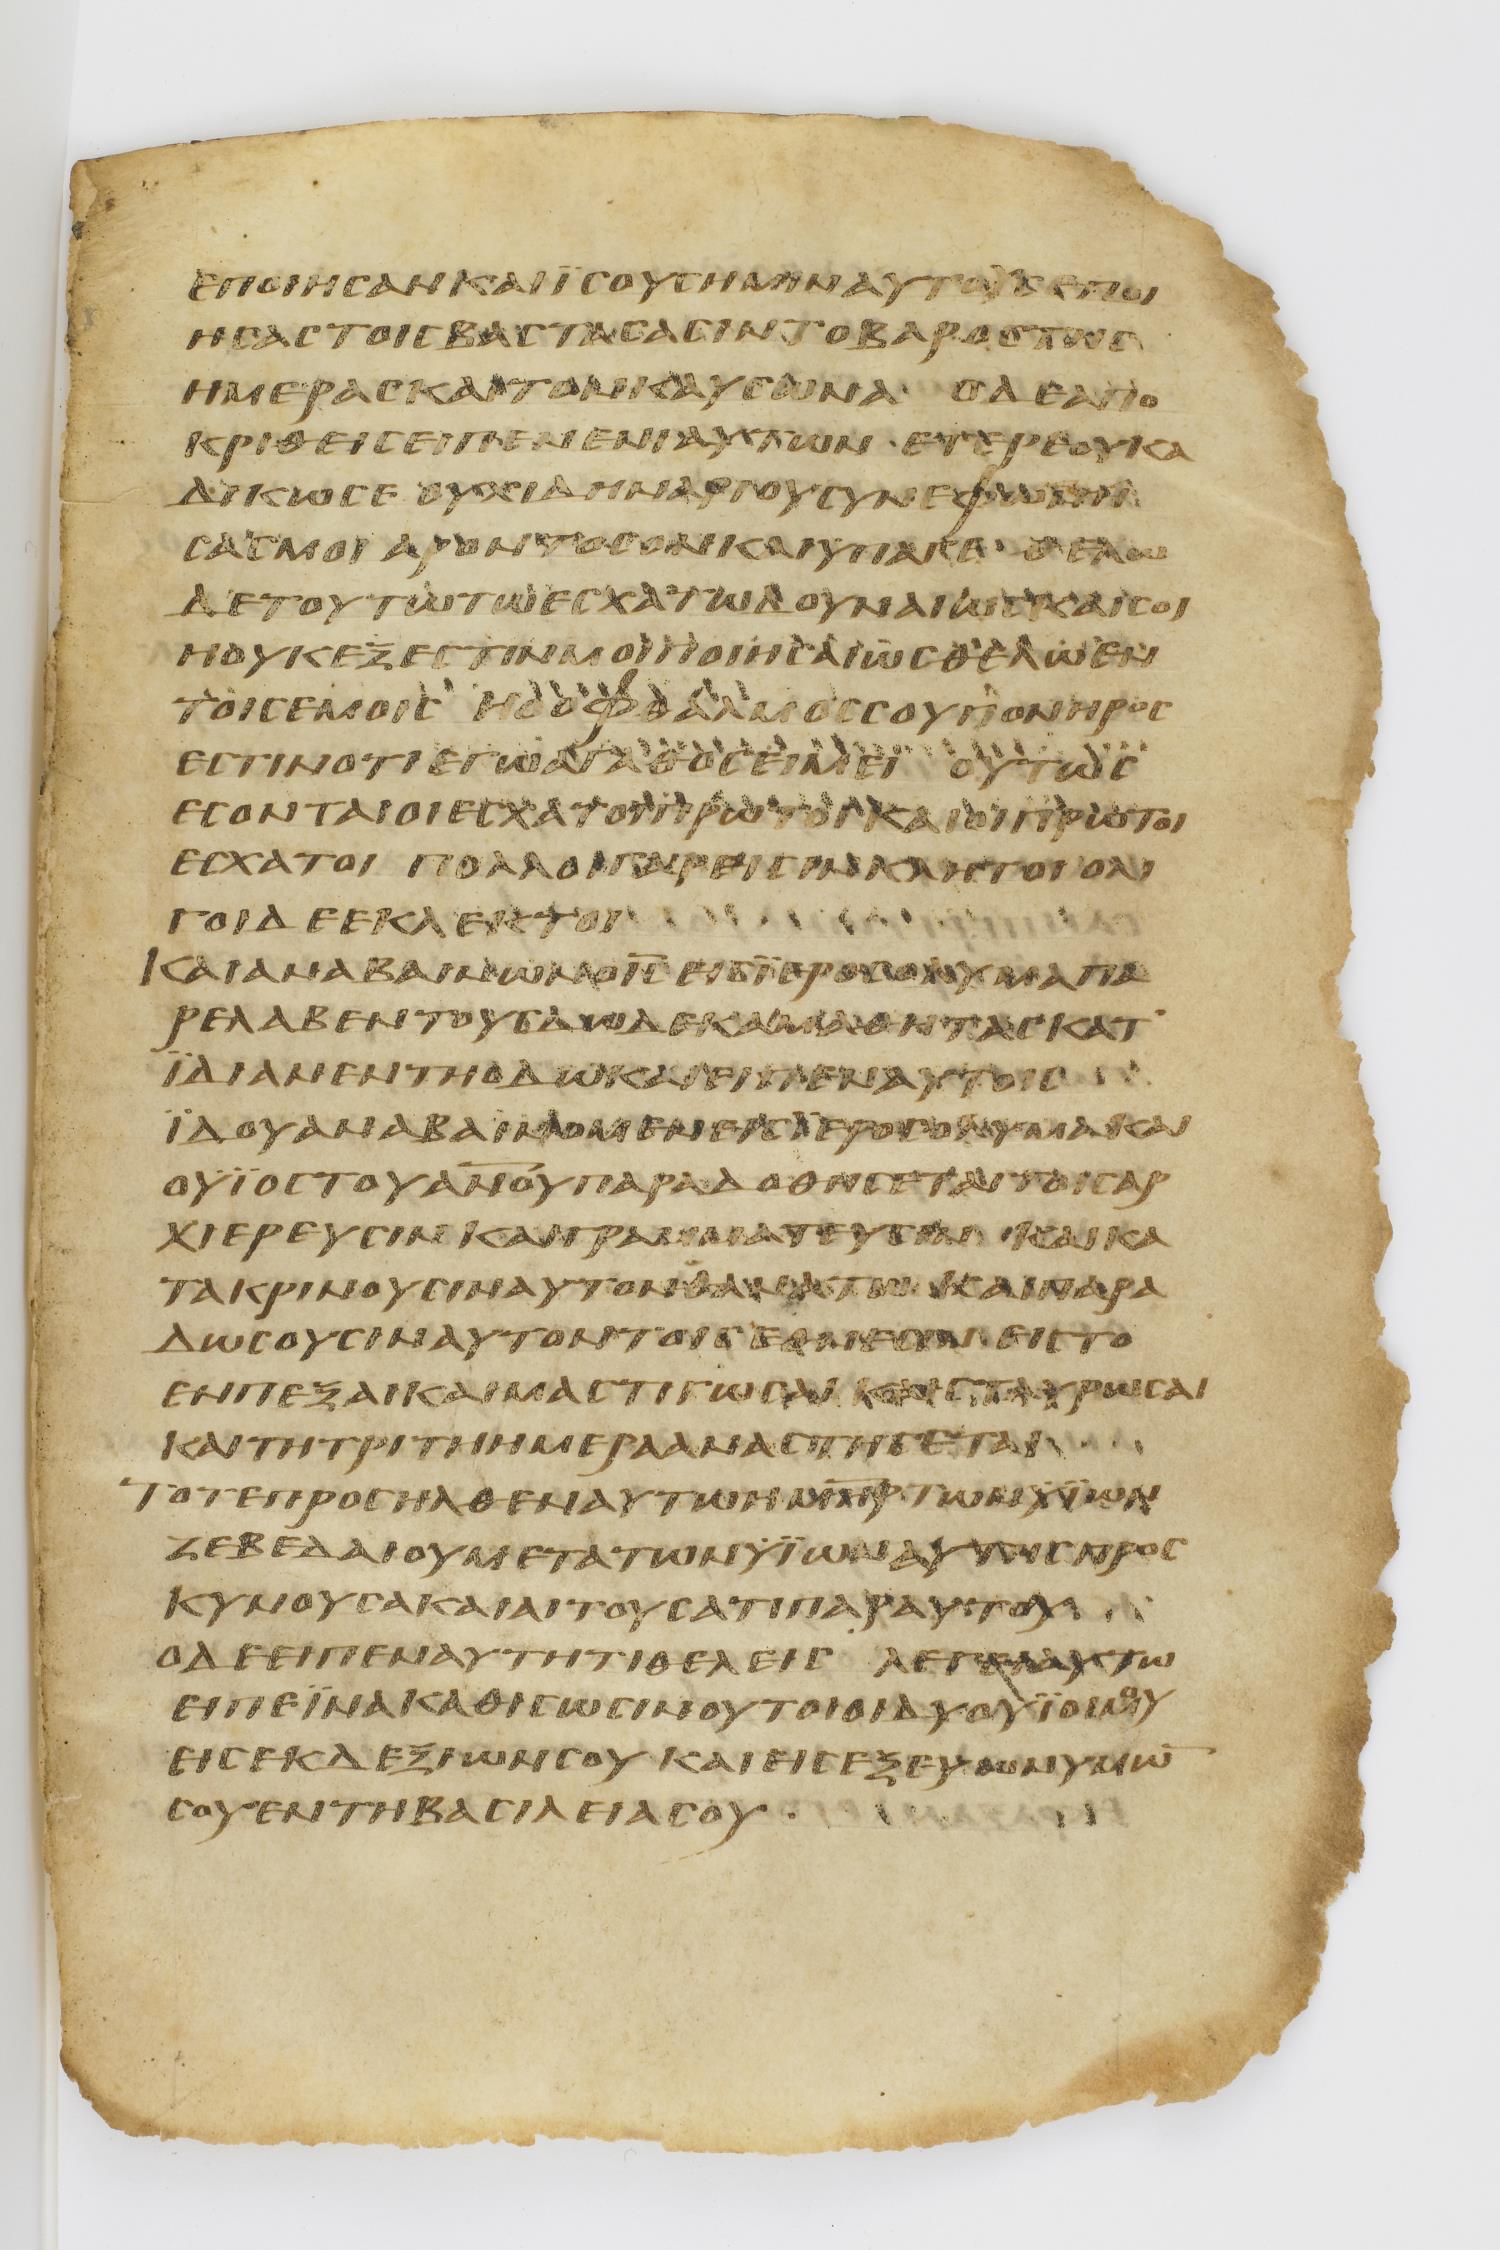 εποιησανκαιϊσουσημιναυτουσεποι
ησαστοισβαστασασιντοβαροστησ
ημερασκαιτονκαυσωνα οδεαπο
κριθεισειπενενιαυτων ετερεουκα
δικωσε ουχιδηναριουσυνεφωνη
σασμοι αροντοσονκαιυπαγε θελω
δετουτωτωεσχατωδουναιωσκαισοι
ηουκεξεστινμοιποιησαιωσθελωεν
τοισεμοισ ηοοφθαλμοσσουπονηροσ
εστινοτιεγωαγαθοσειμει ουτωσ
εσονταιοιεσχατοιπρωτοικαιοιπρωτοι
εσχατοι πολλοιγαρεισινκλητοιολι
γοιδεεκλεκτοι
καιαναβαινωνοι̅σ̅εισϊεροσολυμαπα
ρελαβεντουσδωδεκαμαθητασκατ
ϊδιανεντηοδωκαιειπεναυτοισ
ϊδουαναβαινομενεισϊεροσολυμακαι
ουϊοστουα̅ν̅ο̅υ̅παραδοθησεταιτοισαρ
χιερευσινκαιγραμματευσιν καικα
τακρινουσιναυτονθανατω καιπαρα
δωσουσιναυτοντοισεθνεσιν ειστο
ενπεξαικαιμαστιγωσαικαισταυρωσαι
καιτητριτηημερααναστησεται
τοτεπροσηλθεναυτωημ̅η̅ρ̅τωνυϊων
ζεβεδαιουμετατωνυϊωναυτησπροσ
κυνουσακαιαιτουσατιπαραυτου
οδεειπεναυτητιθελεισ λεγειαυτω
ειπεϊνακαθισωσινουτοιοιδυουϊοιμου
εισεκδεξιωνσου καιεισεξευωνυμω̅
σουεντηβασιλειασου